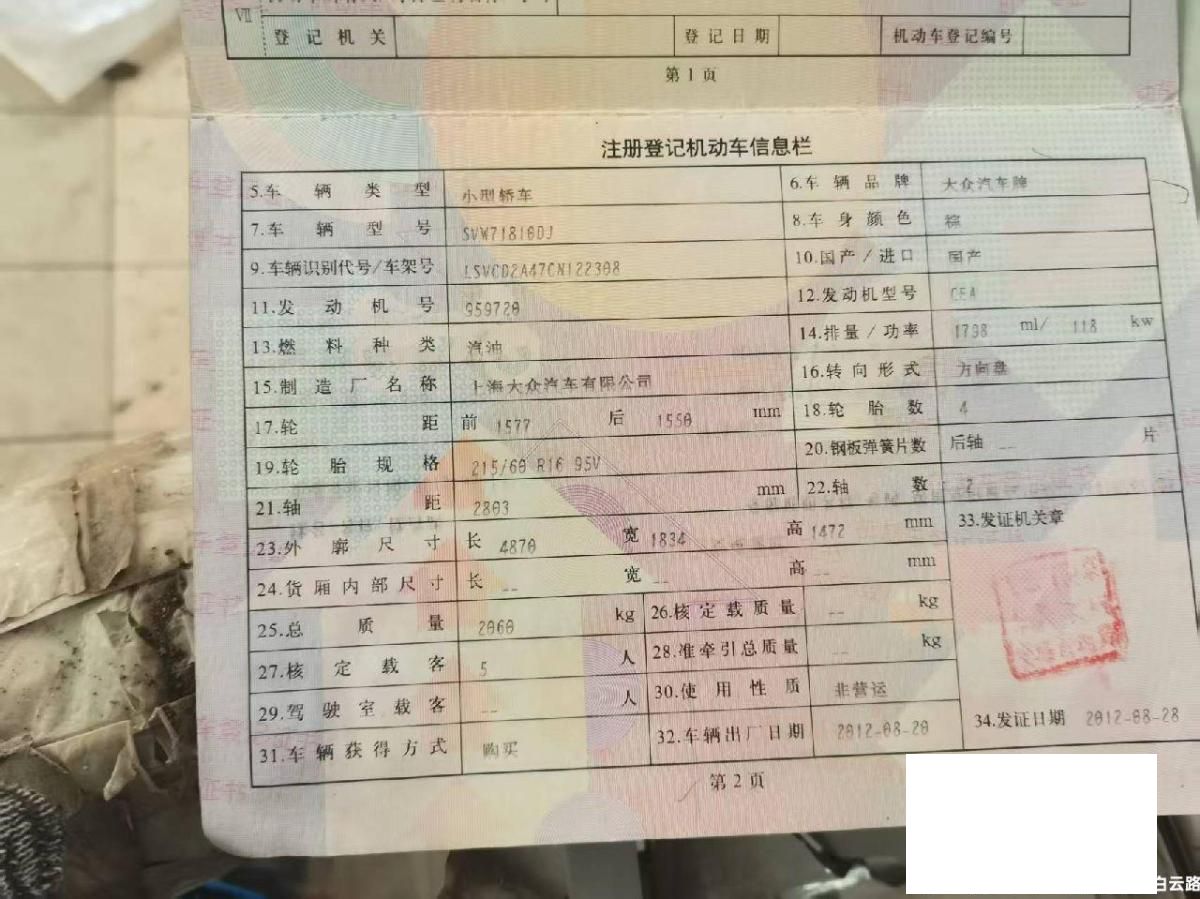 VII
登记机关 登记日期 机动车登记编号
第1页
注册登记机动车信息栏
5.车辆类型 小型轿车 6.车辆品牌 大众汽车牌
7.车辆型号 SVW71810DJ 8.车身颜色 棕
9.车辆识别代号/车架号 LSVCD2A47CN122308 10.国产/进口 国产
11.发动机号 959720 12.发动机型号 CEA
13.燃料种类 汽油 14.排量/功率 1798 ml/ 118 kw
15.制造厂名称 上海大众汽车有限公司 16.转向形式 方向盘
17.轮距 前 1577 后 1550 mm 18.轮胎数 4
19.轮胎规格 215/60 R16 95V 20.钢板弹簧片数 后轴 -- 片
21.轴距 2803 mm 22.轴数 2
23.外廓尺寸 长 4870 宽 1834 高 1472 mm 33.发证机关章
24.货厢内部尺寸 长 -- 宽 -- 高 -- mm
25.总质量 2060 kg 26.核定载质量 -- kg
27.核定载客 5 人 28.准牵引总质量 -- kg
29.驾驶室载客 -- 人 30.使用性质 非营运
31.车辆获得方式 购买 32.车辆出厂日期 2012-08-20 34.发证日期 2012-08-28
第2页
白云路